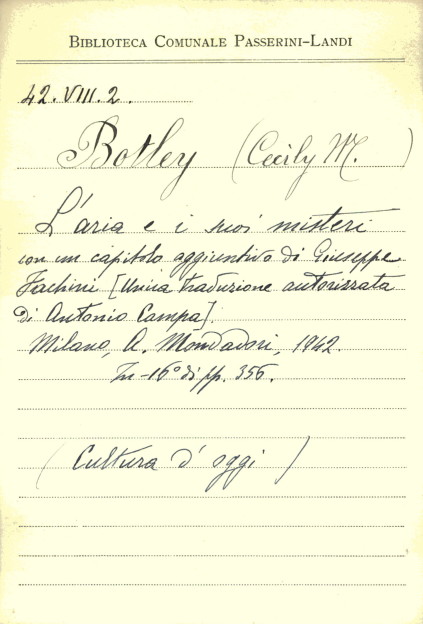 BIBLIOTECA COMUNALE PASSERINI-LANDI
42.VIII.2.
Botley (Cecily M.)
L'aria e i suoi misteri
con un capitolo aggiuntivo di Giuseppe
Fachini [Unica traduzione autorizzata
di Antonio Campa].
Milano, A. Mondadori, 1942.
In-16° di pp. 356.
(Cultura d'oggi)